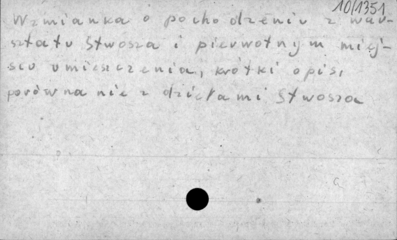 10/1351
Wzmianka o pochodzeniu z war-
sztatu Stwosza i pierwotnym miej-
scu umieszczenia, krótki opis,
porównanie z dziełami Stwosza